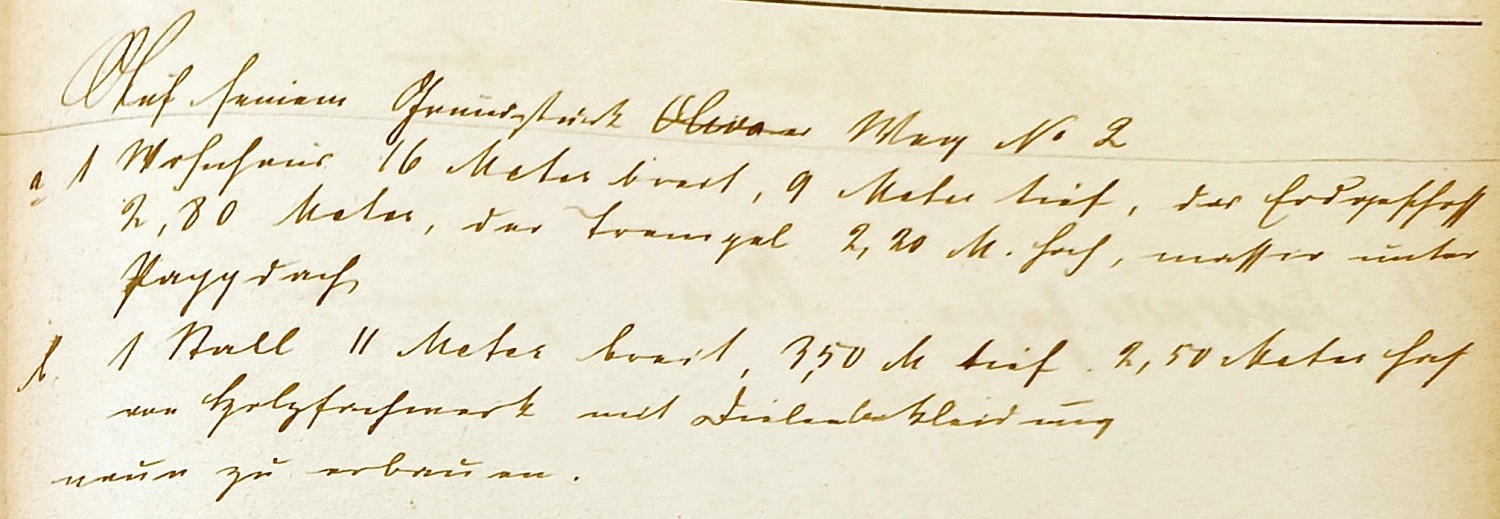 Auf seinem Grundstück Olivaer Weg No 2
a 1 Wohnhaus 16 Meter breit, 9 Meter tief, das Erdgeschoß
2,80 Meter, der Trempel 2,20 M. hoch, massiv unter
Pappdach
b. 1 Stall 11 Meter breit, 3,50 M tief. 2,50 Meter hoch
von Holzfachwerk mit Dielenbekleidung
neu zu erbauen.